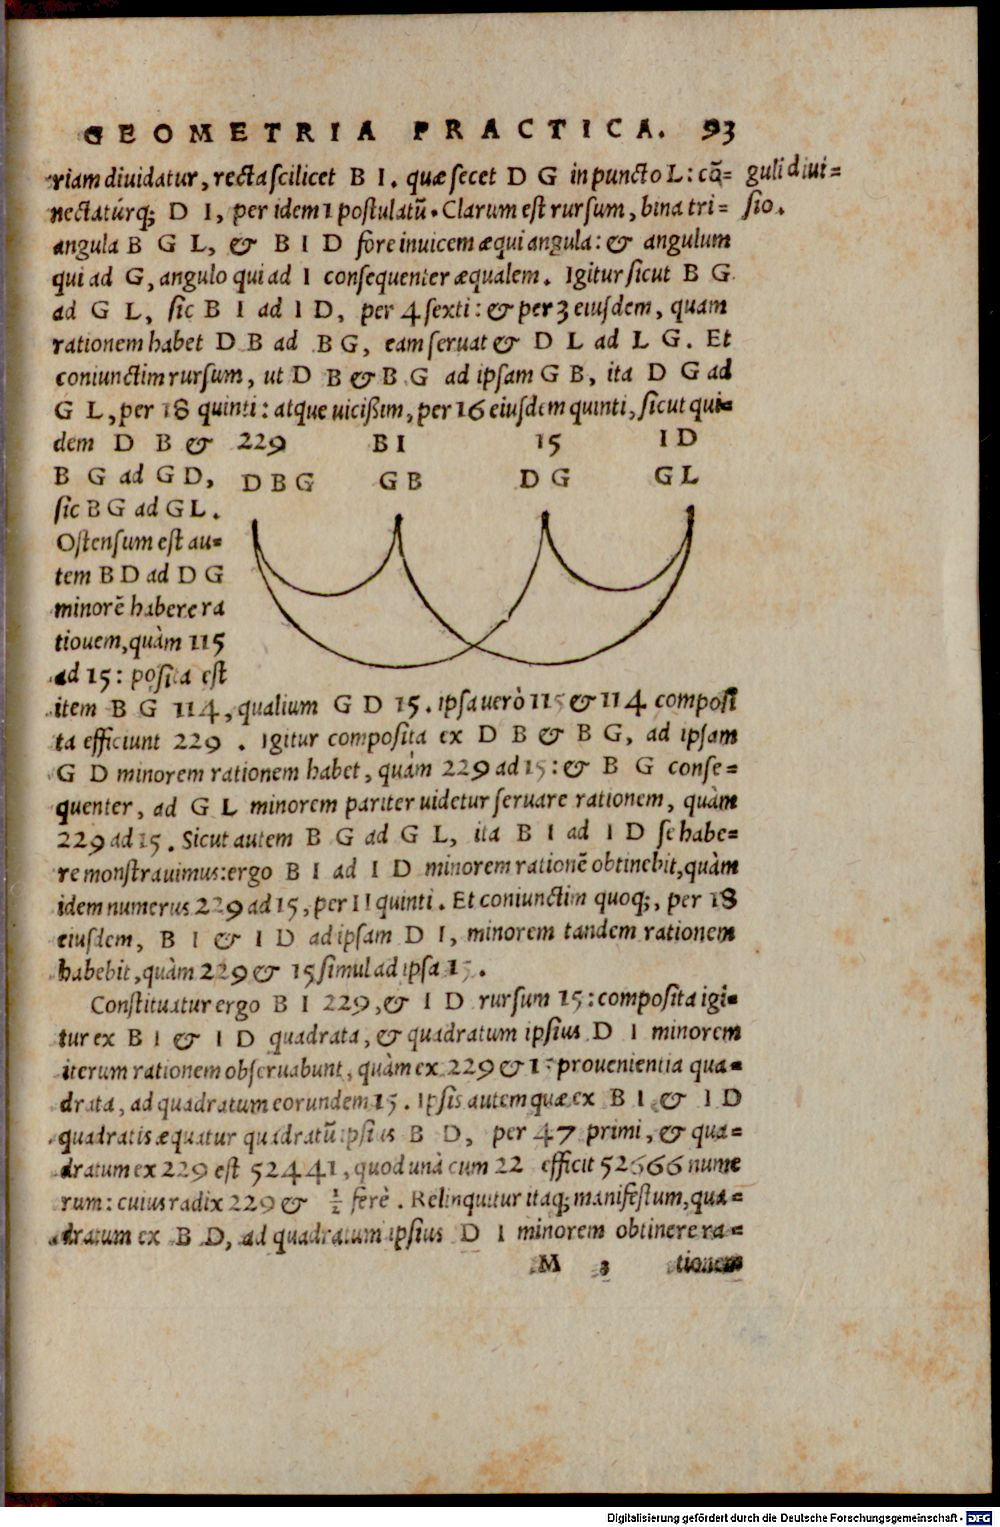 GEOMETRIA PRACTICA. 93
riam diuidatur, recta scilicet B I. quæ secet D G in puncto L: cō=
guli diui=
nectatúrq; D I, per idem 1 postulatū. Clarum est rursum, bina tri=
sio.
angula B G L, & B I D fore inuicem æquiangula: & angulum
qui ad G, angulo qui ad I consequenter æqualem. Igitur sicut B G
ad G L, sic B I ad I D, per 4 sexti: & per 3 eiusdem, quam
rationem habet D B ad B G, eam seruat & D L ad L G. Et
coniunctim rursum, ut D B & B G ad ipsam G B, ita D G ad
G L, per 18 quinti: atque uicißim, per 16 eiusdem quinti, sicut qui=
dem D B &
B G ad G D,
sic B G ad G L.
Ostensum est au=
tem B D ad D G
minorē habere ra
tiouem, quàm 115
ad 15: posita est
229 B I 15 I D
D B G G B D G G L
item B G 114, qualium G D 15. ipsa uerò 115 & 114 composi
ta efficiunt 229 . Igitur composita ex D B & B G, ad ipsam
G D minorem rationem habet, quàm 229 ad 15: & B G conse=
quenter, ad G L minorem pariter uidetur seruare rationem, quàm
229 ad 15. Sicut autem B G ad G L, ita B I ad I D se habe=
re monstrauimus: ergo B I ad I D minorem rationē obtinebit, quàm
idem numerus 229 ad 15, per 11 quinti. Et coniunctim quoq;, per 18
eiusdem, B I & I D ad ipsam D I, minorem tandem rationem
habebit, quàm 229 & 15 simul ad ipsa 15.
Constituatur ergo B I 229, & I D rursum 15: composita igi=
tur ex B I & I D quadrata, & quadratum ipsius D I minorem
iterum rationem obseruabunt, quàm ex 229 & 15 prouenientia qua=
drata, ad quadratum eorundem 15. Ipsis autem quæ ex B I & I D
quadratis æquatur quadratū ipsius B D, per 47 primi, & qua=
dratum ex 229 est 52441, quod unà cum 22 efficit 52666 nume
rum: cuius radix 229 & 1/2 ferè. Relinquitur itaq; manifestum, qua=
dratum ex B D, ad quadratum ipsius D I minorem obtinere ra=
M 3 tionem
Digitalisierung gefördert durch die Deutsche Forschungsgemeinschaft - DFG